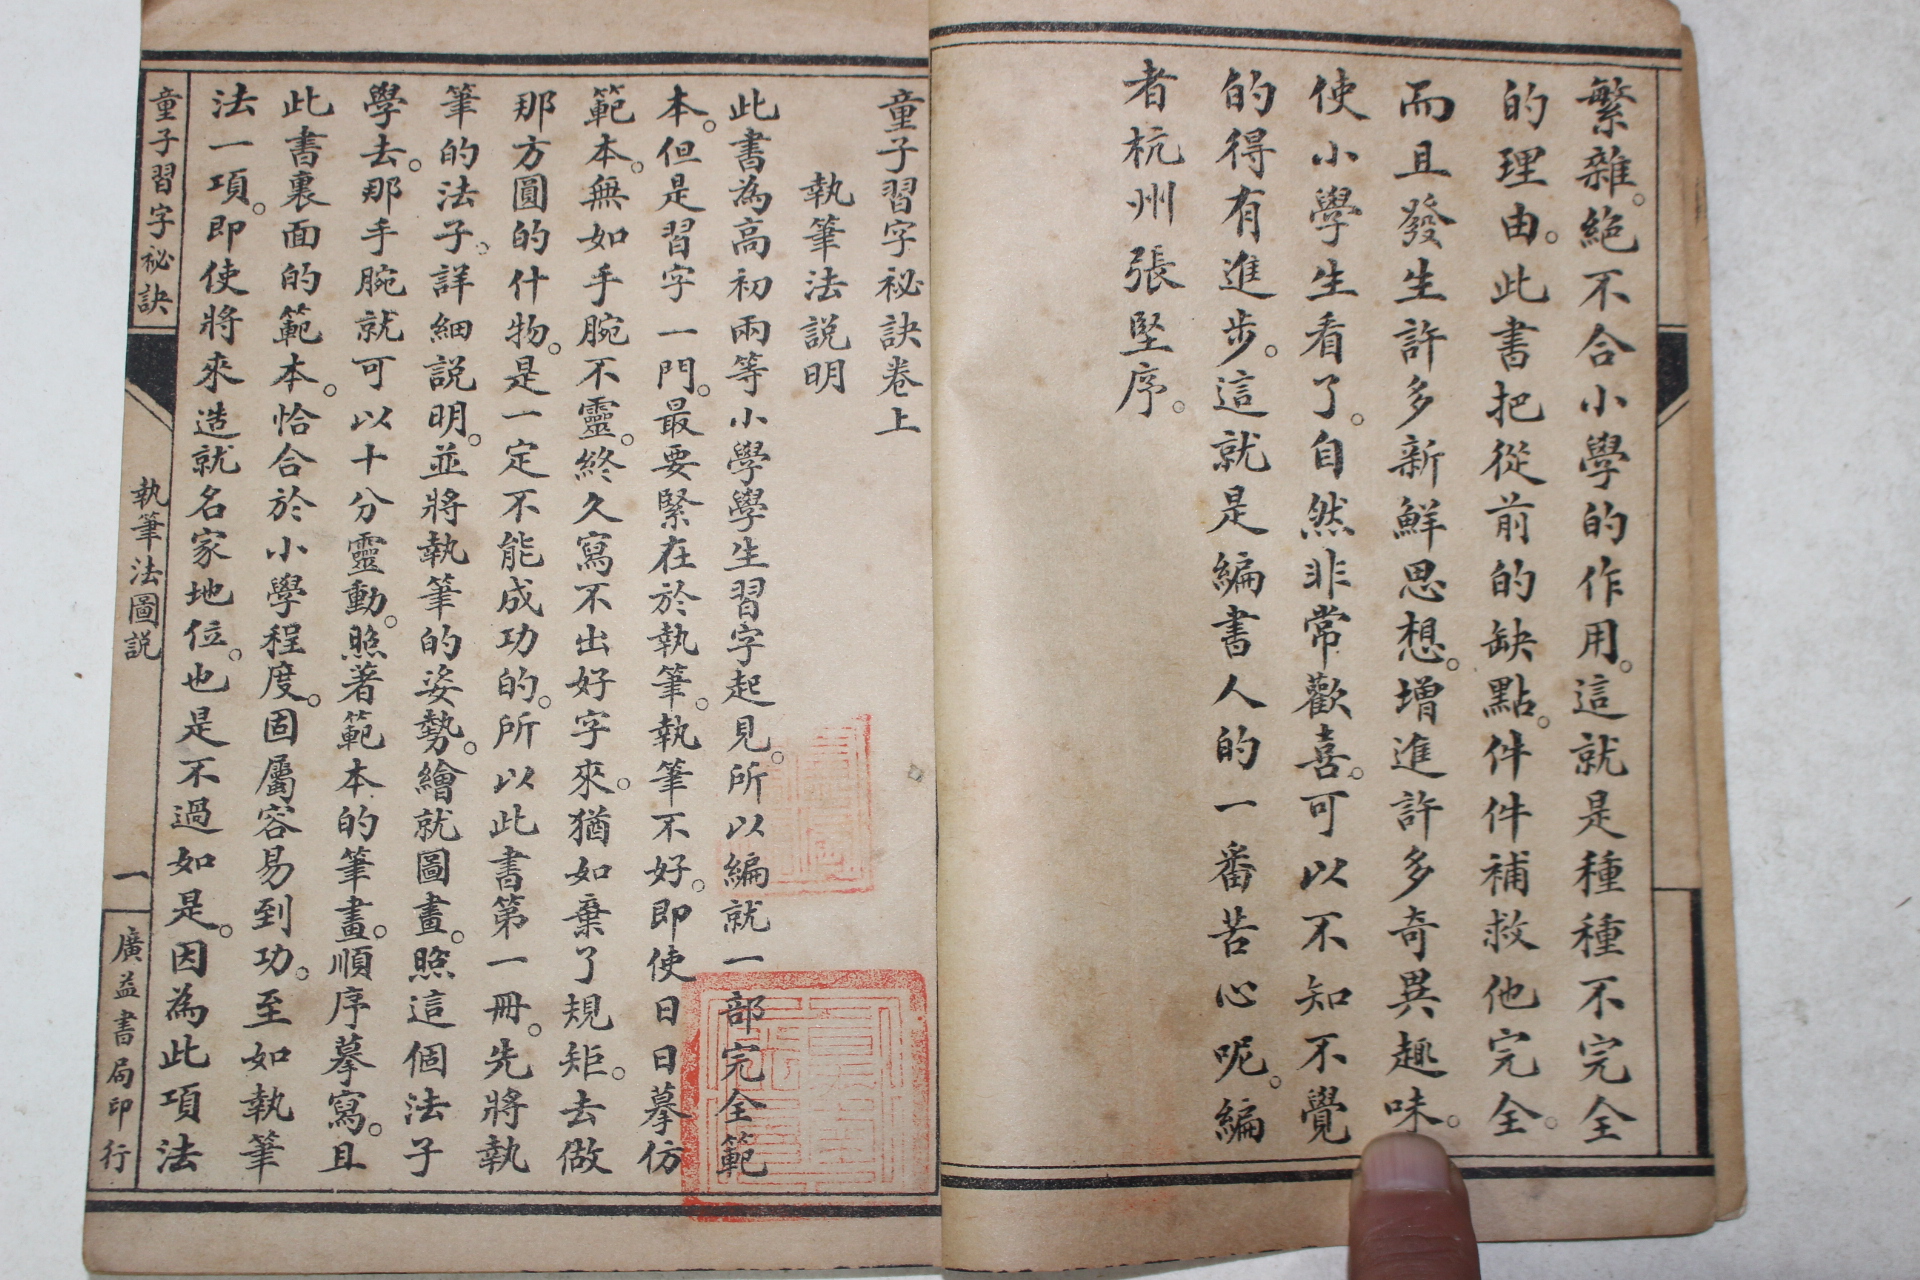 繁雜。絕不合小學的作用。這就是種種不完全
的理由。此書把從前的缺點。件件補救他完全。
而且發生許多新鮮思想。增進許多奇異趣味。
使小學生看了。自然非常歡喜。可以不知不覺
的得有進步。這就是編書人的一番苦心呢。編
者杭州張堅序。
童子習字祕訣卷上
執筆法說明
此書為高初兩等小學學生習字起見。所以編就一部完全範
本。但是習字一門。最要緊在於執筆。執筆不好。即使日日摹仿
範本。無如手腕不靈。終久寫不出好字來。猶如棄了規矩。去做
那方圓的什物。是一定不能成功的。所以此書第一冊。先將執
筆的法子。詳細說明。並將執筆的姿勢。繪就圖畫。照這個法子
學去。那手腕就可以十分靈動。照著範本的筆畫。順序摹寫。且
此書裏面的範本。恰合於小學程度。固屬容易到功。至如執筆
法一項。即使將來造就名家地位。也是不過如是。因為此項法
童子習字祕訣
執筆法圖說
一
廣益書局印行